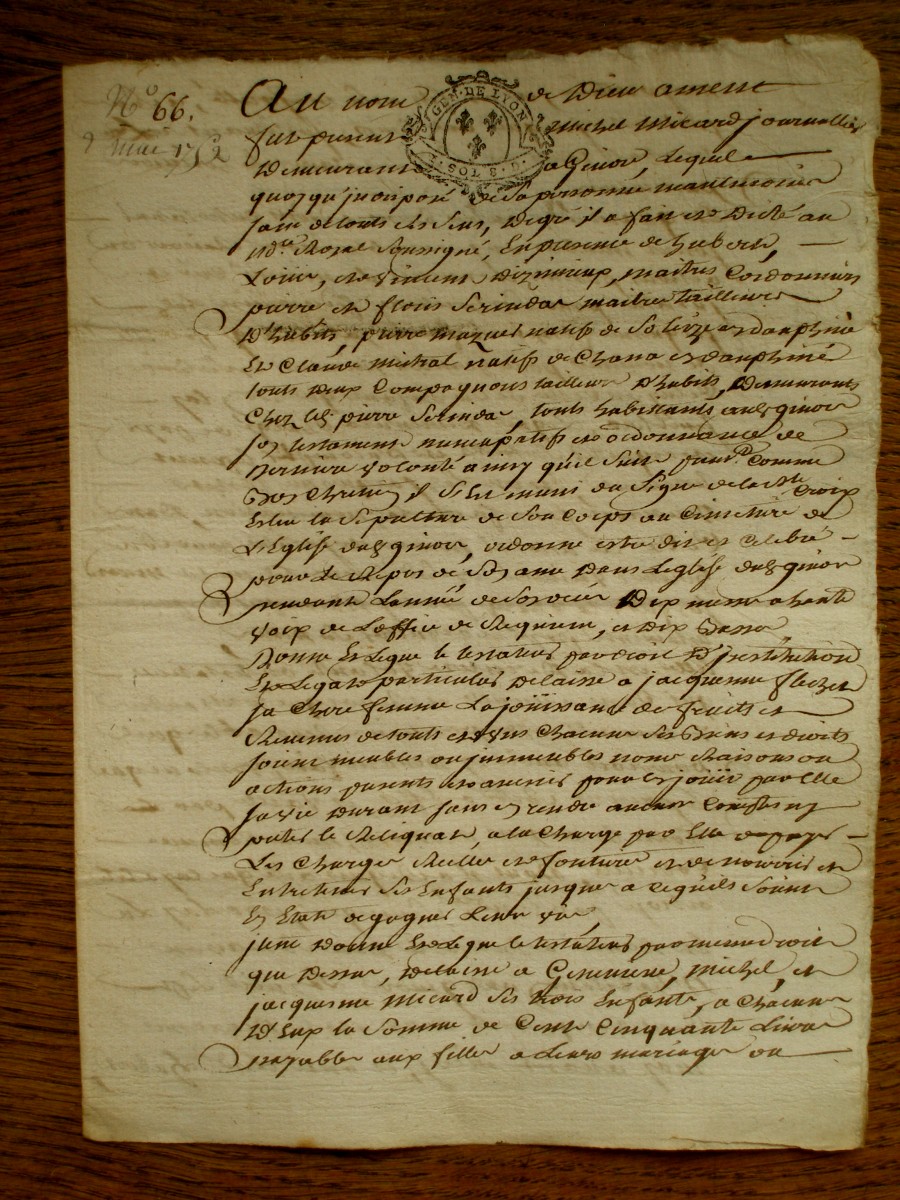 No 66.
2 mai 1752
GEN. DE LYON
Au nom de Dieu amen
fut present Michel Micard journallier
demeurant a Givor, Lequel
quoyqu'jndisposé de sa personne neantmoins
sain de touts ses sens, de gré il a fait et dicté au
no.re Royal soussigné, En presence de hubert
et vincent maitres Cordonniers
pierre et floris Serindat maitres tailleurs
D'habits, pierre natif de en dauphiné
Et Claude mistral natif de Chana en dauphiné
touts deux Compagnons tailleurs d'habits, demeurants
Chez led. pierre Serindat, touts habittants aud. givor
son testament nuncupatif et ordonnance de
derniere volonté ainsy qu'il suit Comme
bon chretien il s'est muni du signe de la ste Croix
Eslu la sepulture de son Corps au Cimetiere de
L'Eglise dud. givor, ordonne estre dit et celebré
pour le Repos de son ame dans l'eglise dud. givor
pendant l'année de son deces Dix messes a haute
voix de L'office de Requiem, et dix basses
Donne Et Legue le testateur par droit d'jnstitution
Et Legat particulier delaisse a jacquemme
sa Chere femme La joüissance des fruits et
Revenus de touts et uns Chacuns ses biens et droits
soient meubles ou jmmeubles noms Raisons ou
actions presents et avenir pour en joüir par Elle
sa vie durant sans en rendre aucun Compte ny
preter le Reliquat, a la Charge par Elle de payer
Les Charges Réelles et foncieres et de nourrir et
Entretenir ses Enfants jusques a ce qu'ils soient
En Etat de gagner Leur vie
jtem donne Et Legue le testateur par meme droit
que dessus, delaisse a Genevieve, Michel, et
jacquemme Micard ses trois Enfants, a Chacun
D'Eux la somme de Cent Cinquante Livres
payable aux filles a Leurs mariages ou